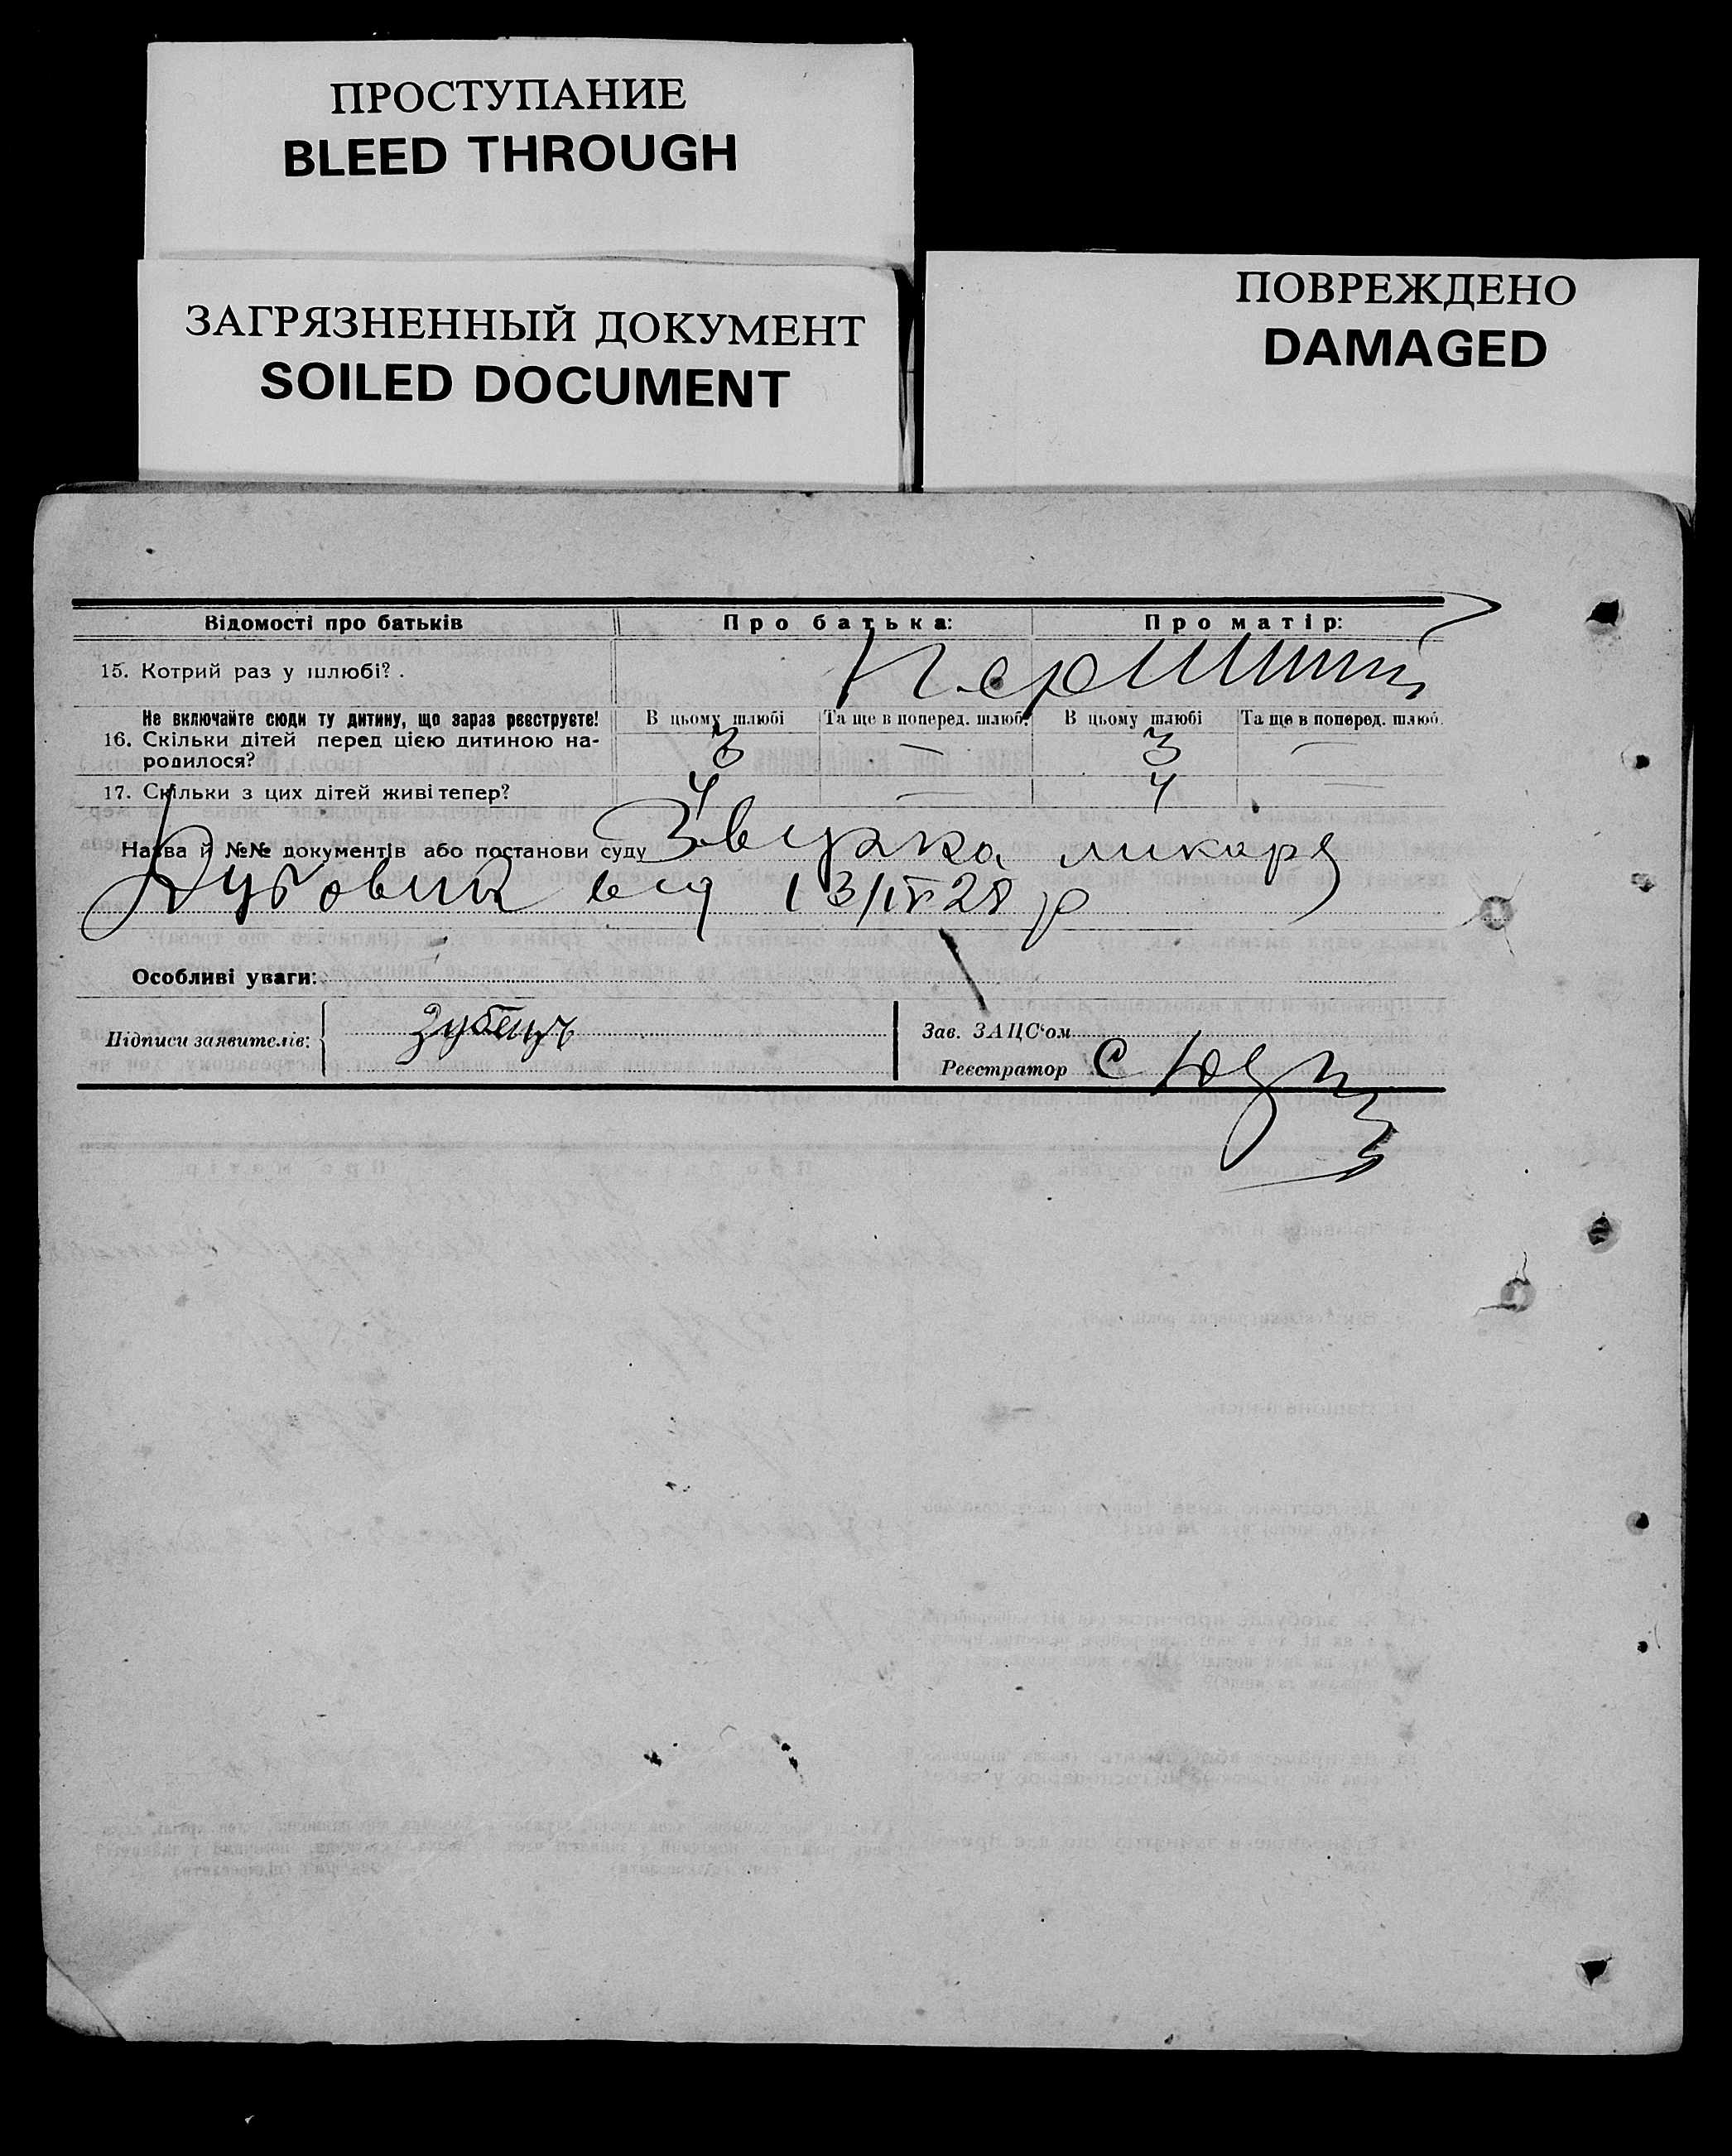 ПРОСТУПАНИЕ
BLEED THROUGH
ЗАГРЯЗНЕННЫЙ ДОКУМЕНТ
SOILED DOCUMENT
ПОВРЕЖДЕНО
DAMAGED
Відомості про батьків Про батька: Про матір:
15. Котрий раз у шлюбі? . Перший
Не включайте сюди ту дитину, що зараз реєструєте! В цьому шлюбі Та ще в поперед. шлюб. В цьому шлюбі Та ще в поперед. шлюб.
16. Скільки дітей перед цією дитиною на- 3 — 3 —
родилося?
17. Скільки з цих дітей живі тепер? 4 — 4 —
Назва й №№ документів або постанови суду ликаря
Дубовик від 13/IV 28 р
Особливі уваги:
Підписи заявителів:
Зав. ЗАЦС'ом
Реєстратор С